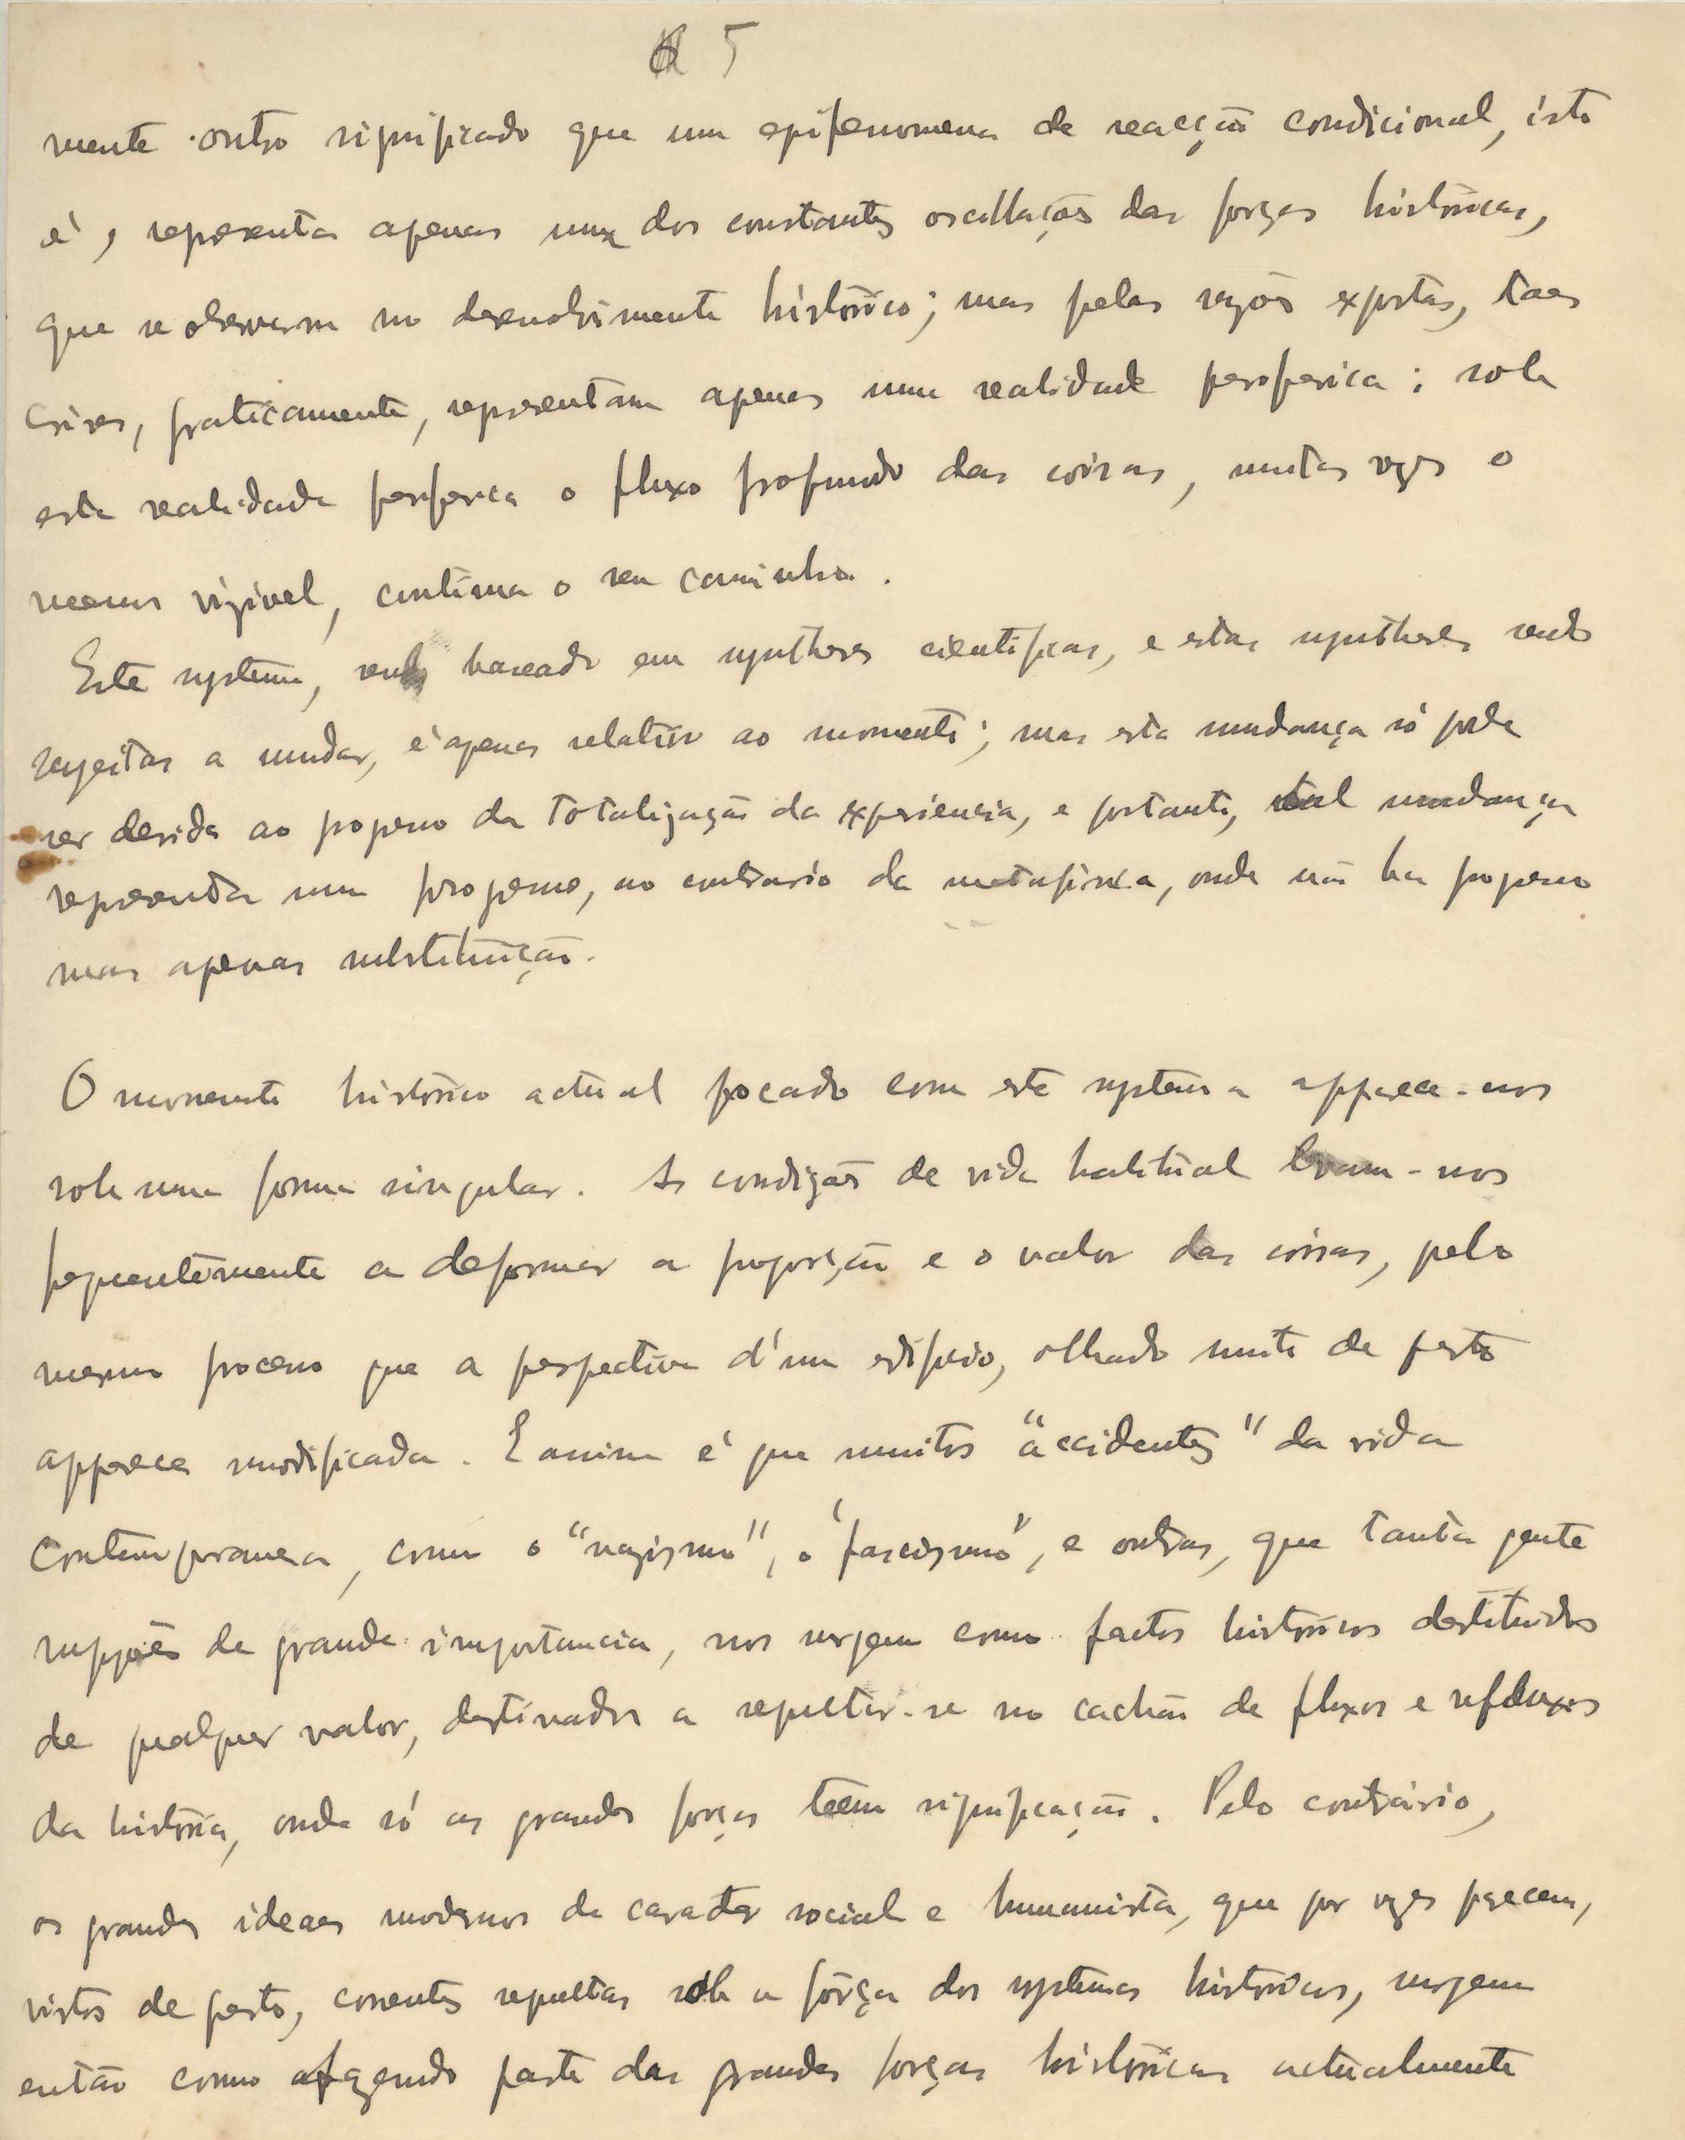 5
mente outro significado que um epifenomena de reacção condicional, isto
é, representa apenas uma das constantes oscillações das forças históricas,
que se observam no desenvolvimento histórico; mas pelas razões expostas, taes
crises, praticamente, representam apenas uma realidade periferica; sob
esta realidade periferica o fluxo profundo das coisas, muitas vezes o
menos vizivel, continua o seu caminho.
Este systema, sendo baseado em syntheses cientificas, e estas syntheses sendo
sugeitas a mudar, é apenas relativo ao momento; mas esta mudança só pode
ser devida ao progresso da totalização da experiencia, e portanto, tal mudança
representa um progresso, ao contrario da metafisica, onde não ha progresso
mas apenas substituição.
O momento histórico actual focado com este systema apparece-nos
sob uma forma singular. As condições de vida habitual levam-nos
frequentemente a deformar a proporção e o valor das coisas, pelo
mesmo processo que a perspectiva d'um edificio, olhado muito de perto
apparece modificada. E assim é que muitos "accidentes" da vida
contemporanea, como o "nazismo", o "fascismo", e outros, que tanta gente
suppões de grande importancia, nos surgem como factos históricos destituidos
de qualquer valor, destinados a repetir-se no cachão de fluxos e refluxos
da história, onde só as grandes forças têem significação. Pelo contrário,
os grandes ideaes modernos de caracter social e humanista, que por vezes parecem,
vistos de perto, correntes sepultas sob a fôrça dos systemas históricos, surgem
então como fazendo parte das grandes forças históricas actualmente